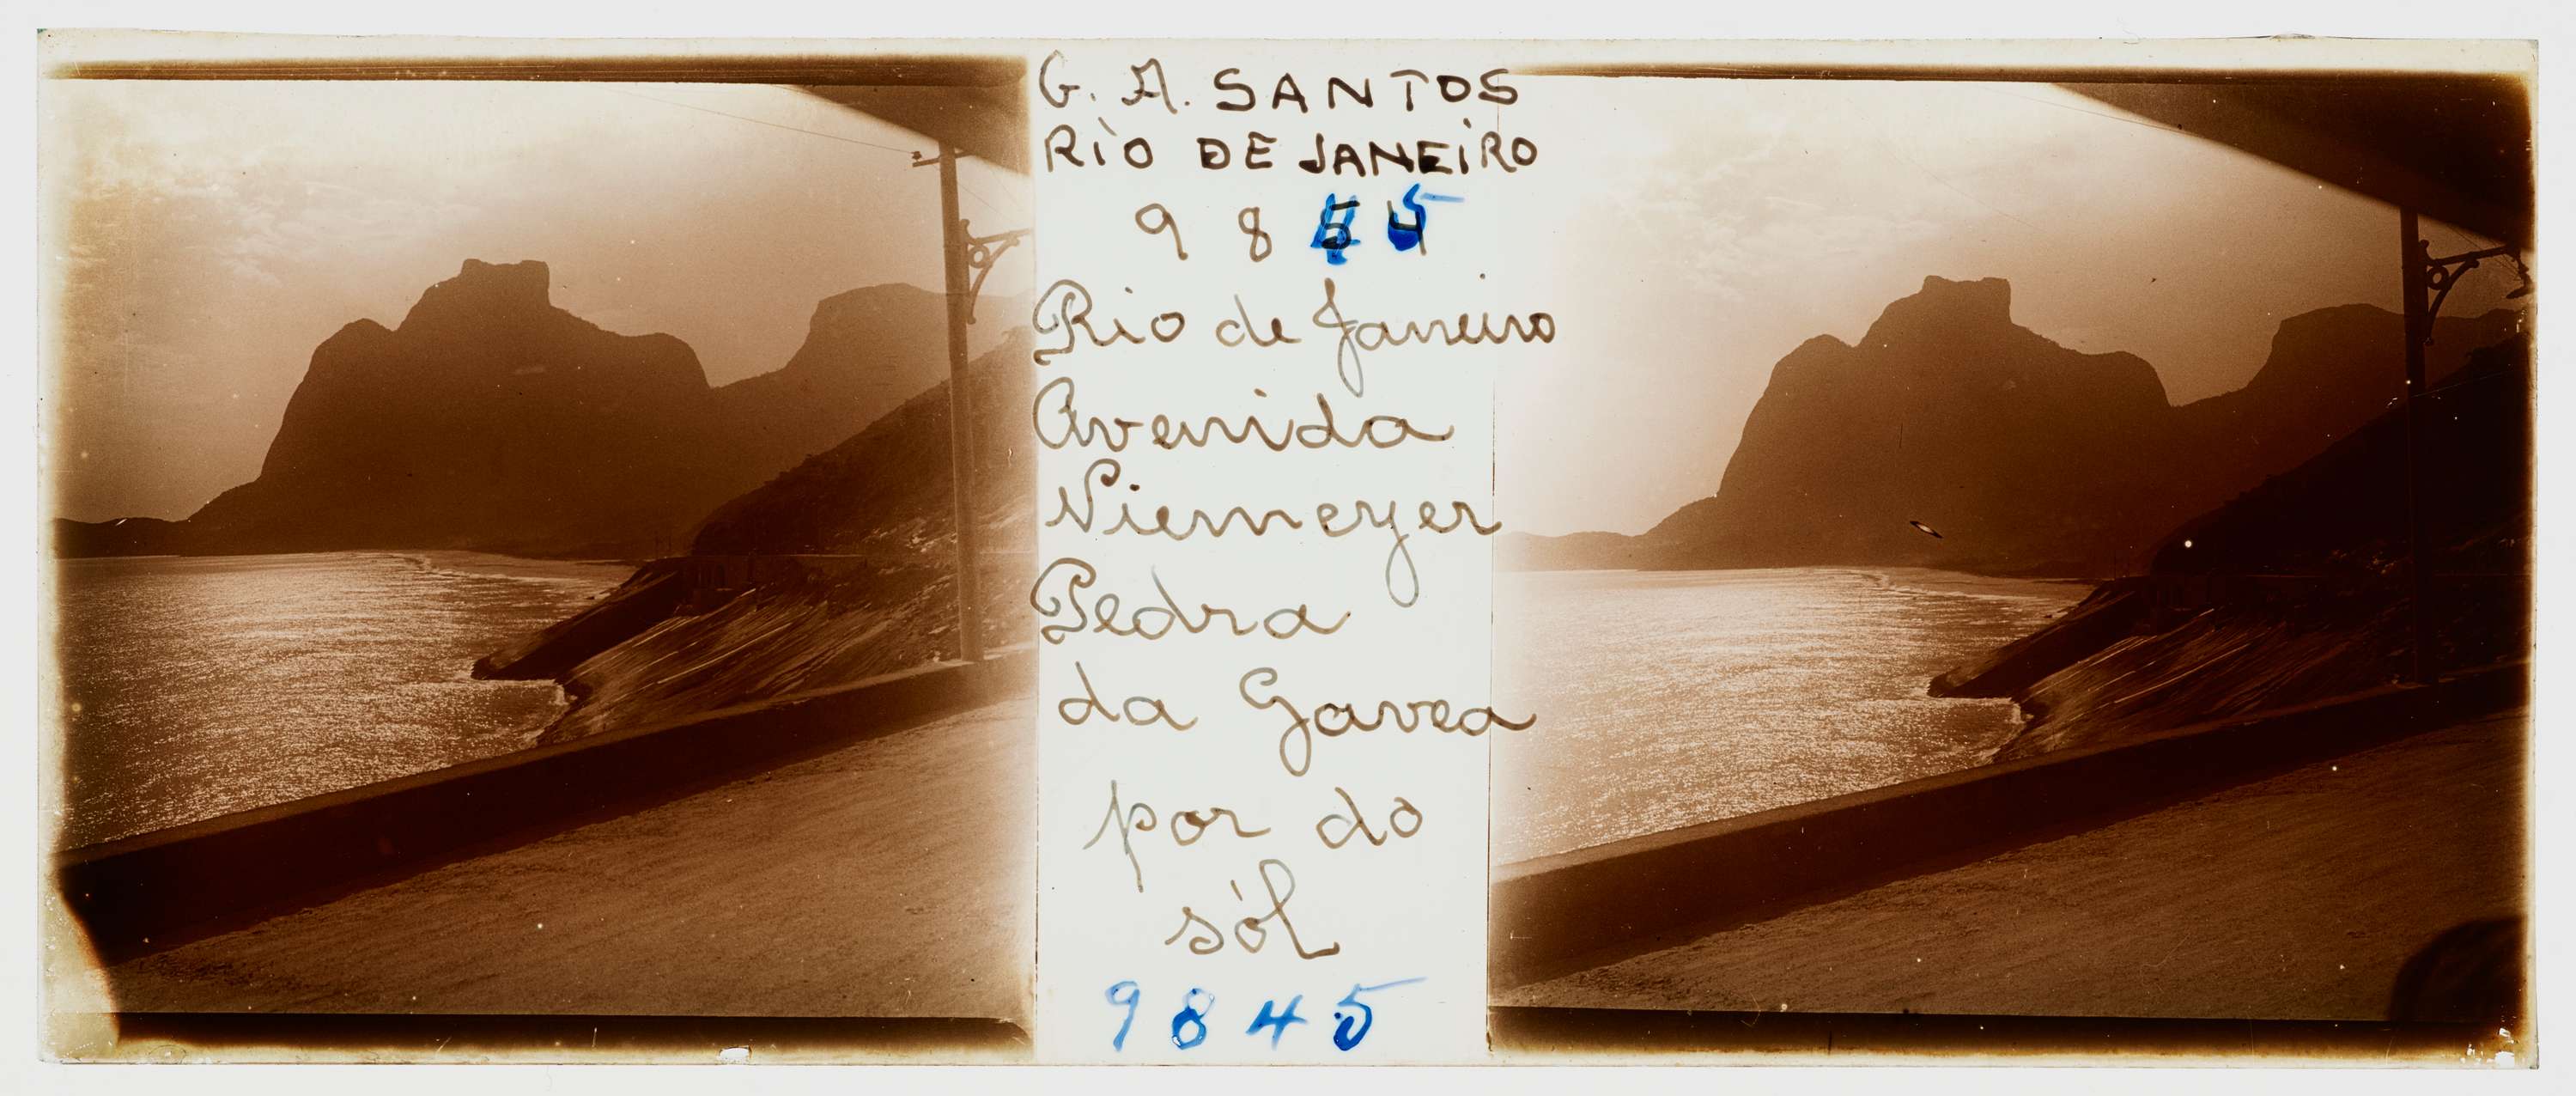 G. A. SANTOS
RIO DE JANEIRO
9845
Rio de Janeiro
Avenida
Niemeyer
Pedra
da Gavea
por do
sól
9845